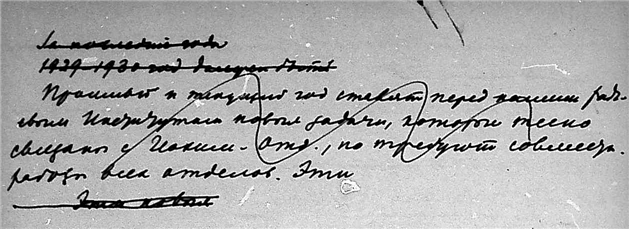 За последние годы
1929-1930 год должен быть
Прошлый и текущий год ставят перед нашим
Институтом новые задачи, которые тесно
связаны с отд., но требуют совместн.
работы всех отделов. Эти
Эти новые